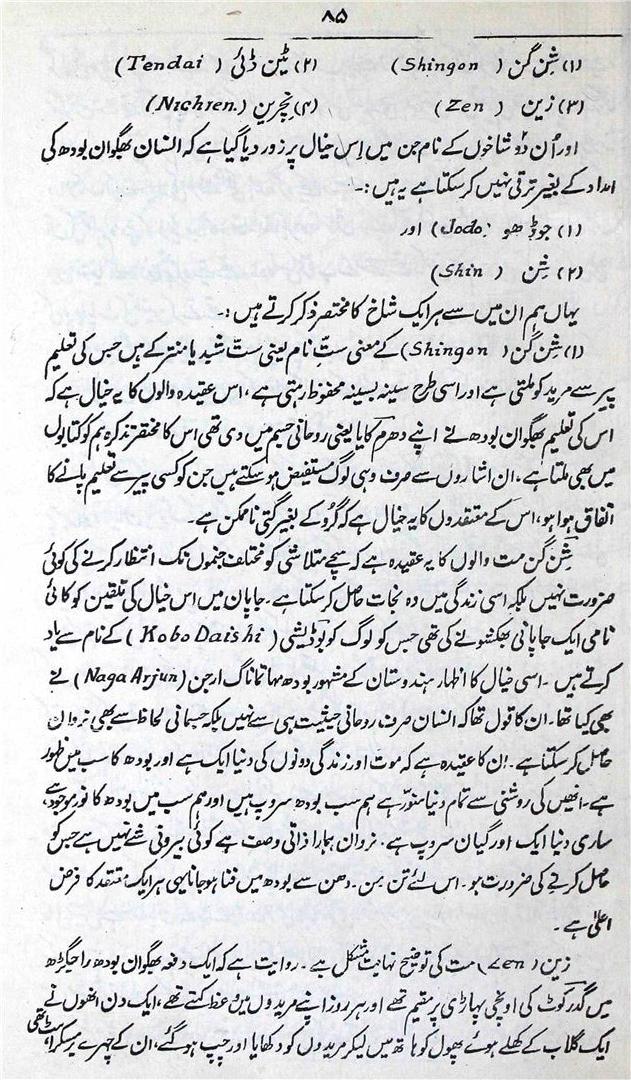 ۸۵
(۱) شِن گن ( Shingon) (۲) ٹین ڈئی ( Tendai)
(۳) زین ( Zen) (۴) نچرین (Nichren.)
اور اُن دُو شاخوں کے نام جن میں اِس خیال پر زور دیا گیا ہے کہ انسان بھگوان بودھ کی
امداد کے بغیر ترقی نہیں کر سکتا ہے یہ ہیں :-
(۱) جوڈھو (Jodo: اور
(۲) شِن ( Shin)
یہاں ہم ان میں سے ہر ایک شاخ کا مختصر ذکر کرتے ہیں :-
(۱) شِن گن ( Shingon) کے معنی ستِ نام یعنی ستَ شبد یا منتر کے ہیں جس کی تعلیم
پیر سے مرید کو ملتی ہے اور اسی طرح سینہ بسینہ محفوظ رہتی ہے، اس عقیدہ والوں کا یہ خیال ہے کہ
اس کی تعلیم بھگوان بودھ نے اپنے دھرم کایا یعنی روحانی جسم میں دی تھی اس کا مختصر تذکرہ ہم کو کتابوں
میں بھی ملتا ہے، ان اشاروں سے صرف وہی لوگ مستفیض ہو سکتے ہیں جن کو کسی پیر سے تعلیم پانے کا
اتفاق ہوا ہو، اس کے معتقدوں کا یہ خیال ہے کہ گُرو کے بغیر گتی ناممکن ہے۔
شِن گن مت والوں کا یہ عقیدہ ہے کہ سچے متلاشی کو مختلف جنموں تک انتظار کرنے کی کوئی
ضرورت نہیں بلکہ اسی زندگی میں وہ نجات حاصل کر سکتا ہے۔ جاپان میں اس خیال کی تلقین کوکائی
نامی ایک جاپانی بھکشو نے کی تھی جس کو لوگ کوبوڈیشی ( Kobo Daishi ) کے نام سے یاد
کرتے ہیں۔ اسی خیال کا اظہار ہندوستان کے مشہور بودھ مہاتما ناگ ارجن (Naga Arjun) نے
بھی کیا تھا۔ ان کا قول تھا کہ انسان صرف روحانی حیثیت ہی سے نہیں بلکہ جسمانی لحاظ سے بھی نروان
حاصل کر سکتا ہے۔ اِن کا عقیدہ ہے کہ موت اور زندگی دونوں کی دنیا ایک ہے اور بودھ کا سب میں ظہور
ہے۔ انھیں کی روشنی سے تمام دنیا منوّر ہے ہم سب بودھ سروپ ہیں اور ہم سب میں بودھ کا نور موجود ہے،
ساری دنیا ایک اور گیان سروپ ہے، نروان ہمارا ذاتی وصف ہے کوئی بیرونی شے نہیں ہے جس کو
حاصل کرنے کی ضرورت ہو۔ اس لئے تن۔من۔دھن سے بودھ میں فنا ہو جانا یہی ہر ایک معتقد کا فرض
اعلیٰ ہے۔
زین ( Zen) مت کی توضیح نہایت مشکل ہے۔ روایت ہے کہ ایک دفعہ بھگوان بودھ راجگڑھ
میں گدرکوٹ کی اونچی پہاڑی پر مقیم تھے اور ہر روز اپنے مریدوں میں وعظ کہتے تھے، ایک دن انھوں نے
ایک گلاب کے کھلے ہوئے پھول کو ہاتھ میں لیکر مریدوں کو دکھایا اور چپ ہو گئے، ان کے چہرے پر مسکراہٹ تھی